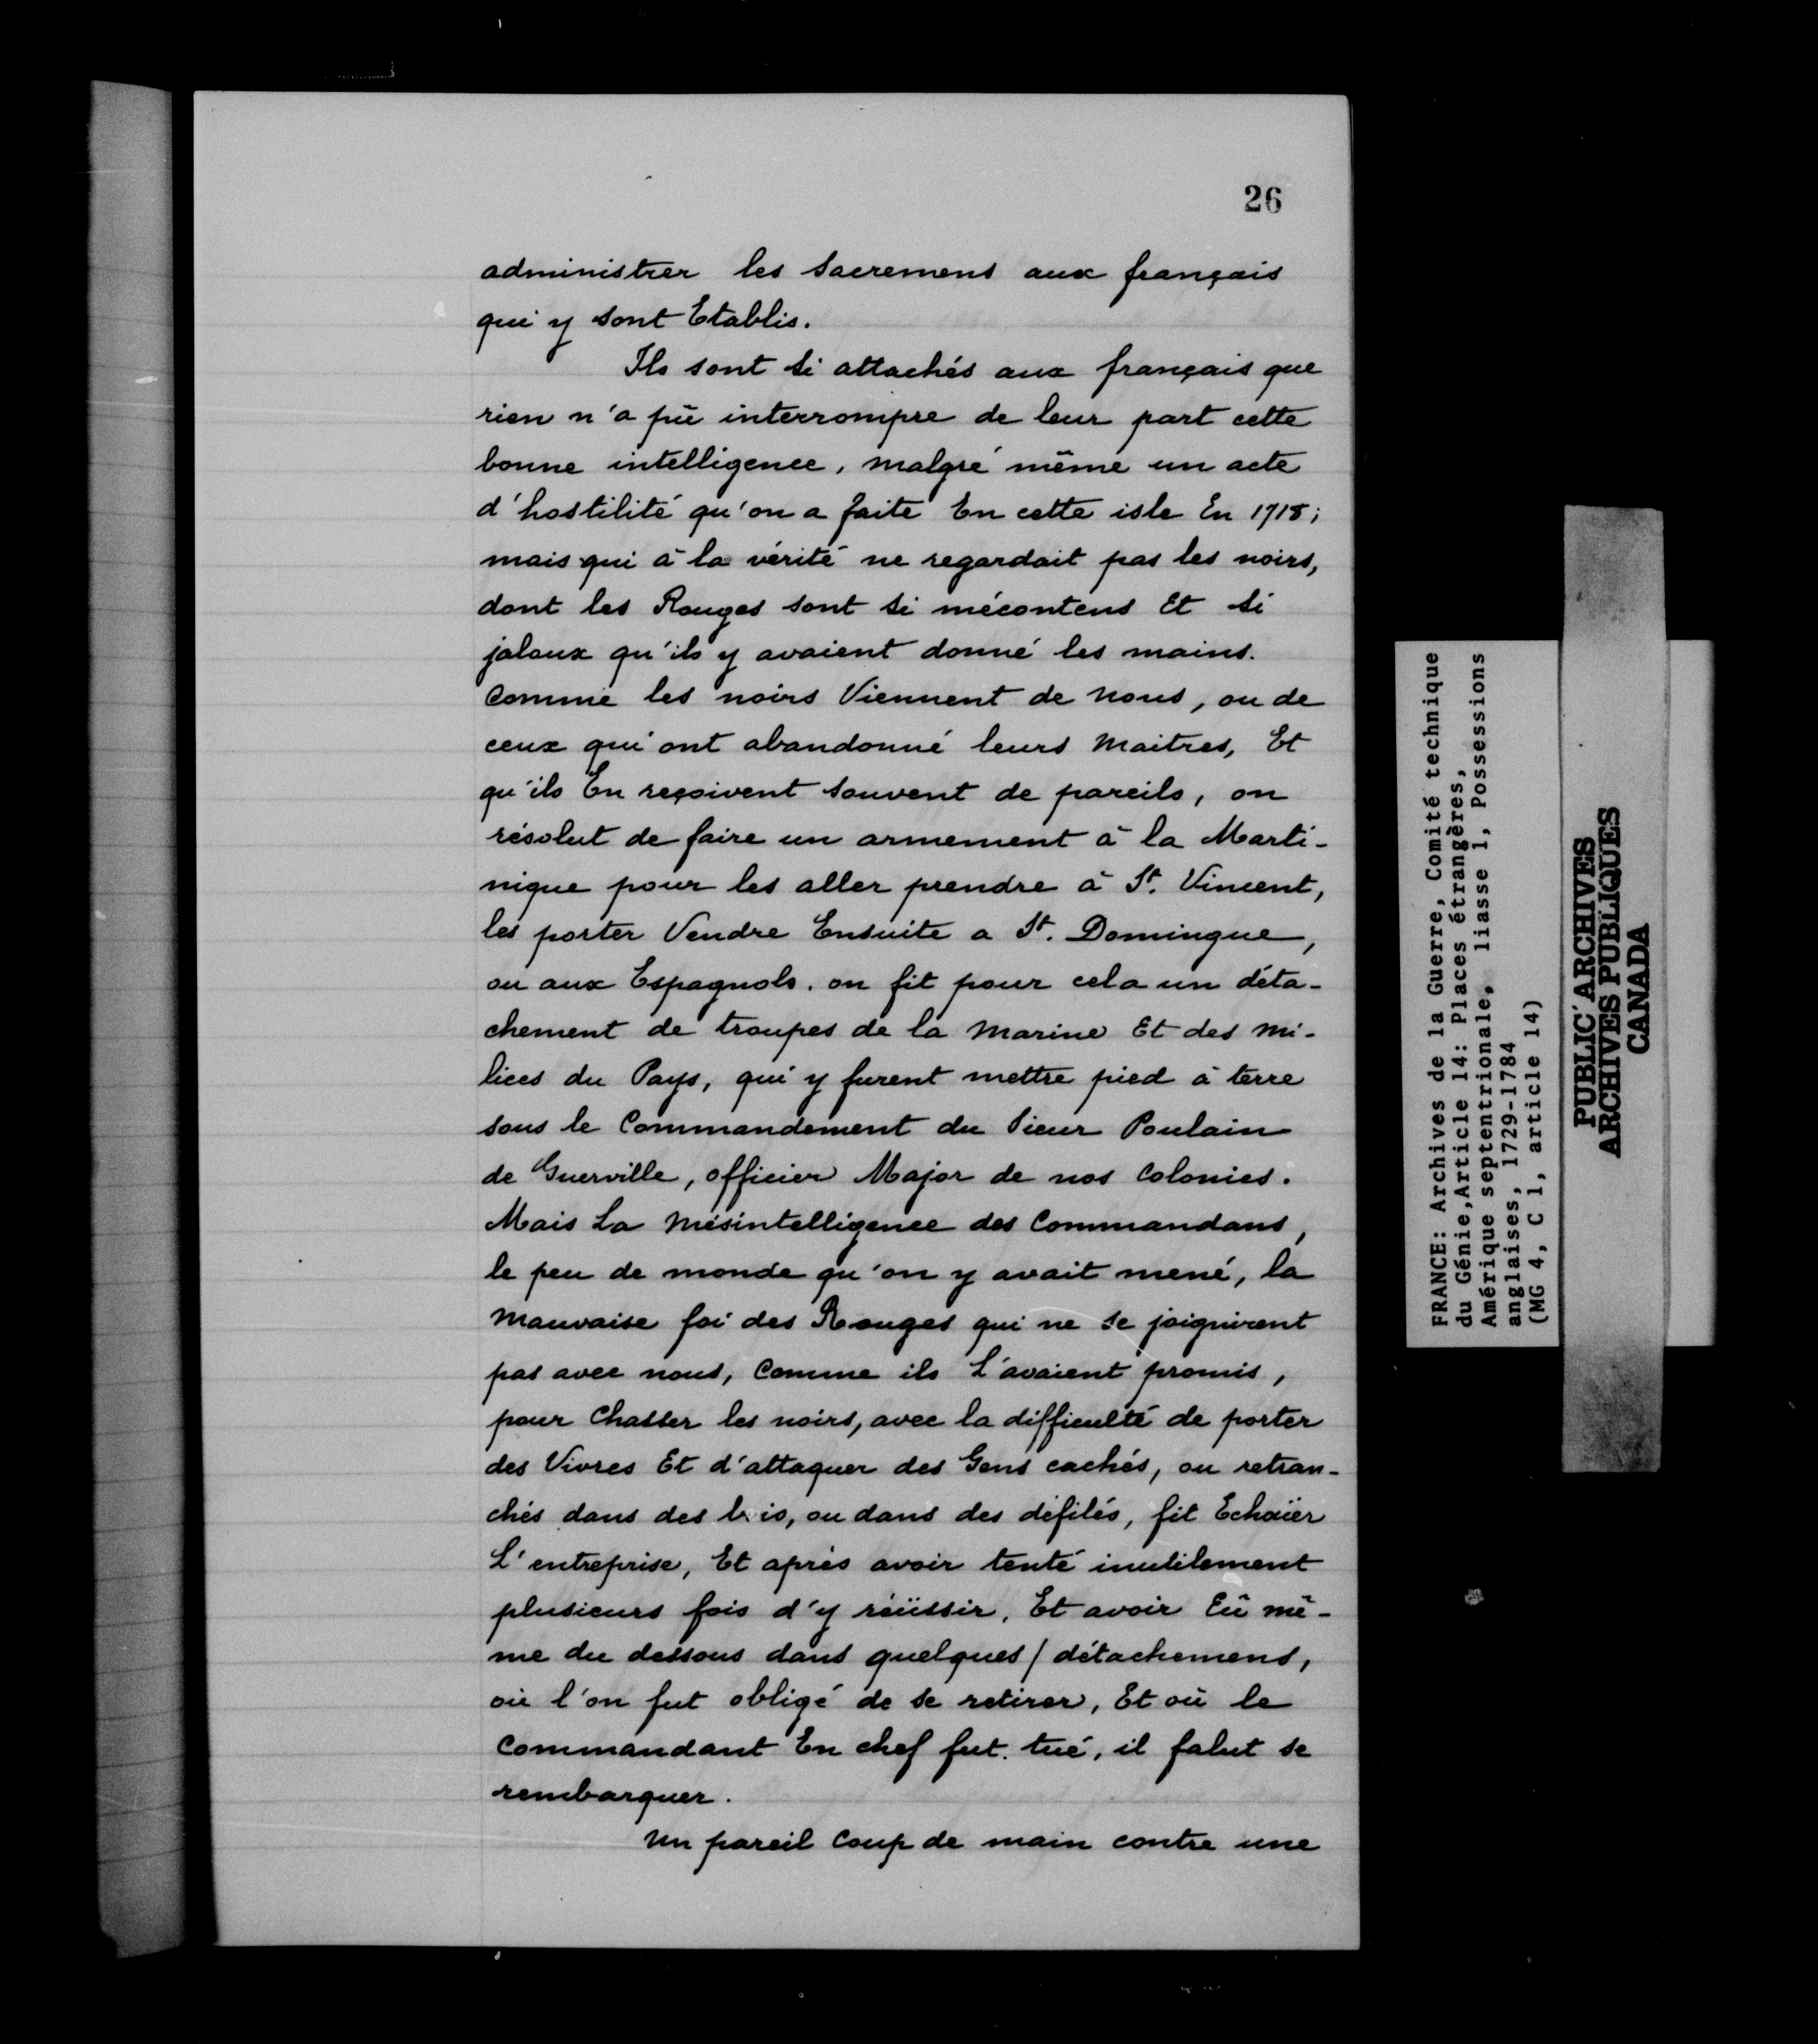 26
administrer les sacremens aux français
qui y sont Etablis.
Ils sont si attachés aux français que
rien n'a pû interrompre de leur part cette
bonne intelligence, malgré même un acte
d'hostilité qu'on a faite En cette isle En 1718;
mais qui à la vérité ne regardait pas les noirs,
dont les Rouges sont si mécontens Et si
jaloux qu'ils y avaient donné les mains.
Comme les noirs Viennent de nous, ou de
ceux qui ont abandonné leurs Maitres, Et
qu'ils En reçoivent souvent de pareils, on
résolut de faire un armement à la Marti-
nique pour les aller prendre à St. Vincent,
les porter Vendre Ensuite a St. Domingue,
ou aux Espagnols. on fit pour cela un déta-
chement de troupes de la Marine Et des Mi-
lices du Pays, qui y furent mettre pied à terre
sous le Commandement du Sieur Poulain
de Guerville, officier Major de nos Colonies.
Mais La Mésintelligence des Commandans,
le peu de monde qu'on y avait mené, la
Mauvaise foi des Rouges qui ne se joignirent
pas avec nous, Comme ils L'avaient promis,
pour Chasser les noirs, avec la difficulté de porter
des Vivres Et d'attaquer des Gens cachés, ou retran-
chés dans des bois, ou dans des défilés, fit Echoüer
L'entreprise, Et après avoir tenté inutilement
plusieurs fois d'y réüssir, Et avoir Eû mê-
me du dessous dans quelques / détachemens,
où l'on fut obligé de se retirer, Et où le
Commandant En chef fut tué, il falut se
rembarquer.
Un pareil Coup de main contre une
FRANCE: Archives de la Guerre, Comité technique
du Génie, Article 14: Places étrangères,
Amérique septentrionale, liasse 1, Possessions
anglaises, 1729-1784
(MG 4, C 1, article 14)
PUBLIC ARCHIVES
ARCHIVES PUBLIQUES
CANADA